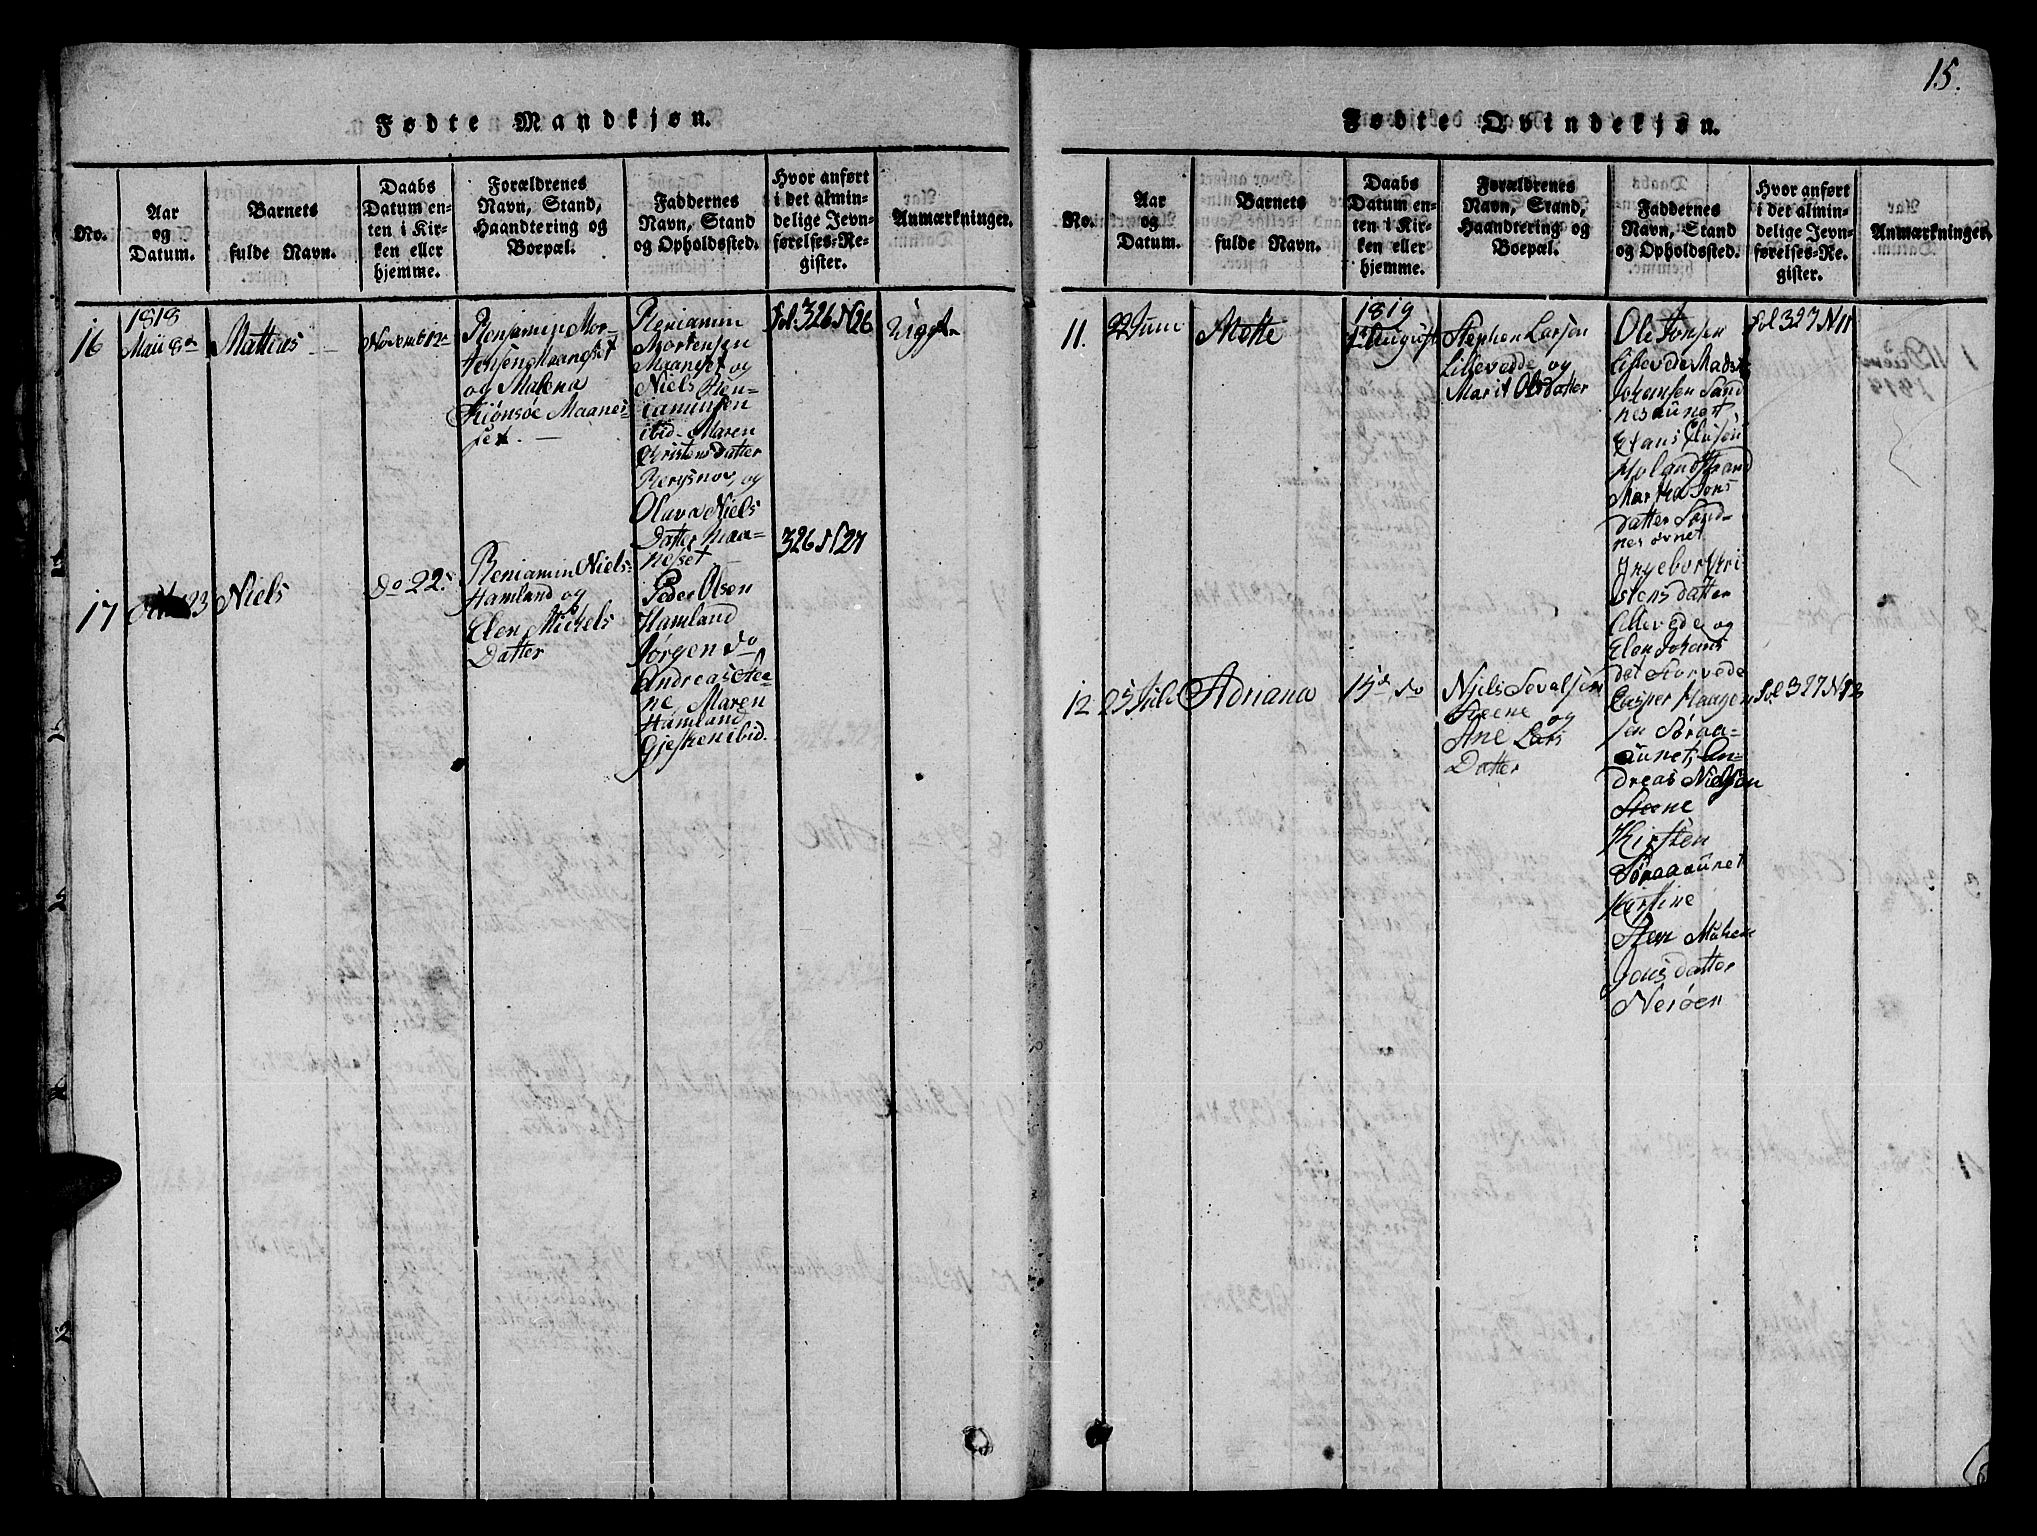 15.
Fødte Mandkjøn.
No.
Aar
og
Datum.
Barnets
fulde Navn.
Daabs
Datum en-
ten i Kir-
ken eller
hjemme.
Forældrenes
Navn, Stand,
Haandtering og
Boepæl.
Faddernes
Navn, Stand
og Opholdssted.
Hvor anført
i det almin-
delige Jevn-
førelses-Re-
gister.
Anmærkninger.
16
1818
Maii 8de
Mattias
Novemb 12te
Benjamin Mor-
tensen Maaneset
og Malena
Kiönsöe Maanes-
set.
Beniamin
Mortensen
Maaneset og
Niels Ben-
iaminsen
ibid. Maren
Christensdatter
Og
Oluva Niels
Datter Maa-
nesset
Fol. 326 N26
17
23
Niels
Do 22
Beniamin Niels:
Hamland og
Elen Mickels
Datter
Peder Olsen
Hamland
Jørgen do
Andreas Ste-
ne, Maren
Hamland
Gjesken ibid.
326 N27
Fødte Qvindekjøn.
No.
Aar
og
Datum.
Barnets
fulde Navn.
Daabs
Datum en-
ten i Kir-
ken eller
hjemme.
Forældrenes
Navn, Stand,
Haandtering og
Boepæl.
Faddernes
Navn, Stand
og Opholdssted.
Hvor anført
i det almin-
delige Jevn-
førelses-Re-
gister.
Anmærkninger.
11.
22 Juni
Mette
1819
1 August
Stephen Larsen
Lillevedde og
Marit Olsdatter
Ole Jonsen
Lillevede Mads
Johansen Sand
nesaunet
Hans Olufsen
Hølandstrand
Martha Jons
datter Sand-
nes øvnet
Ingebor Kri
stens datter
Lillevede og
Elen Johans
dat Storvede
Fol 327 N 11
12
25 Juli
Adriana
15de do
Niels Sevalsen
Steene og
Ane Lars
Datter
Casper Haagen
sen Søraa-
aunet, An-
dreas Nielsen
Steene
Kirsten
Søraaaunet
Kirstine
Steen
Jonsdatter
Nerøen
Fol 327 N 12